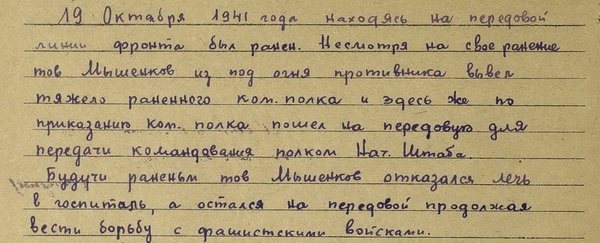 19 Октября 1941 года находясь на передовой
линии фронта был ранен. Несмотря на свое ранение
тов Мышенков из под огня противника вывел
тяжело раненного ком. полка и здесь же по
приказанию ком. полка пошел на передовую для
передачи командования полком Нач. Штаба.
Будучи раненым тов Мышенков отказался лечь
в госпиталь, а остался на передовой продолжая
вести борьбу с фашистскими войсками.